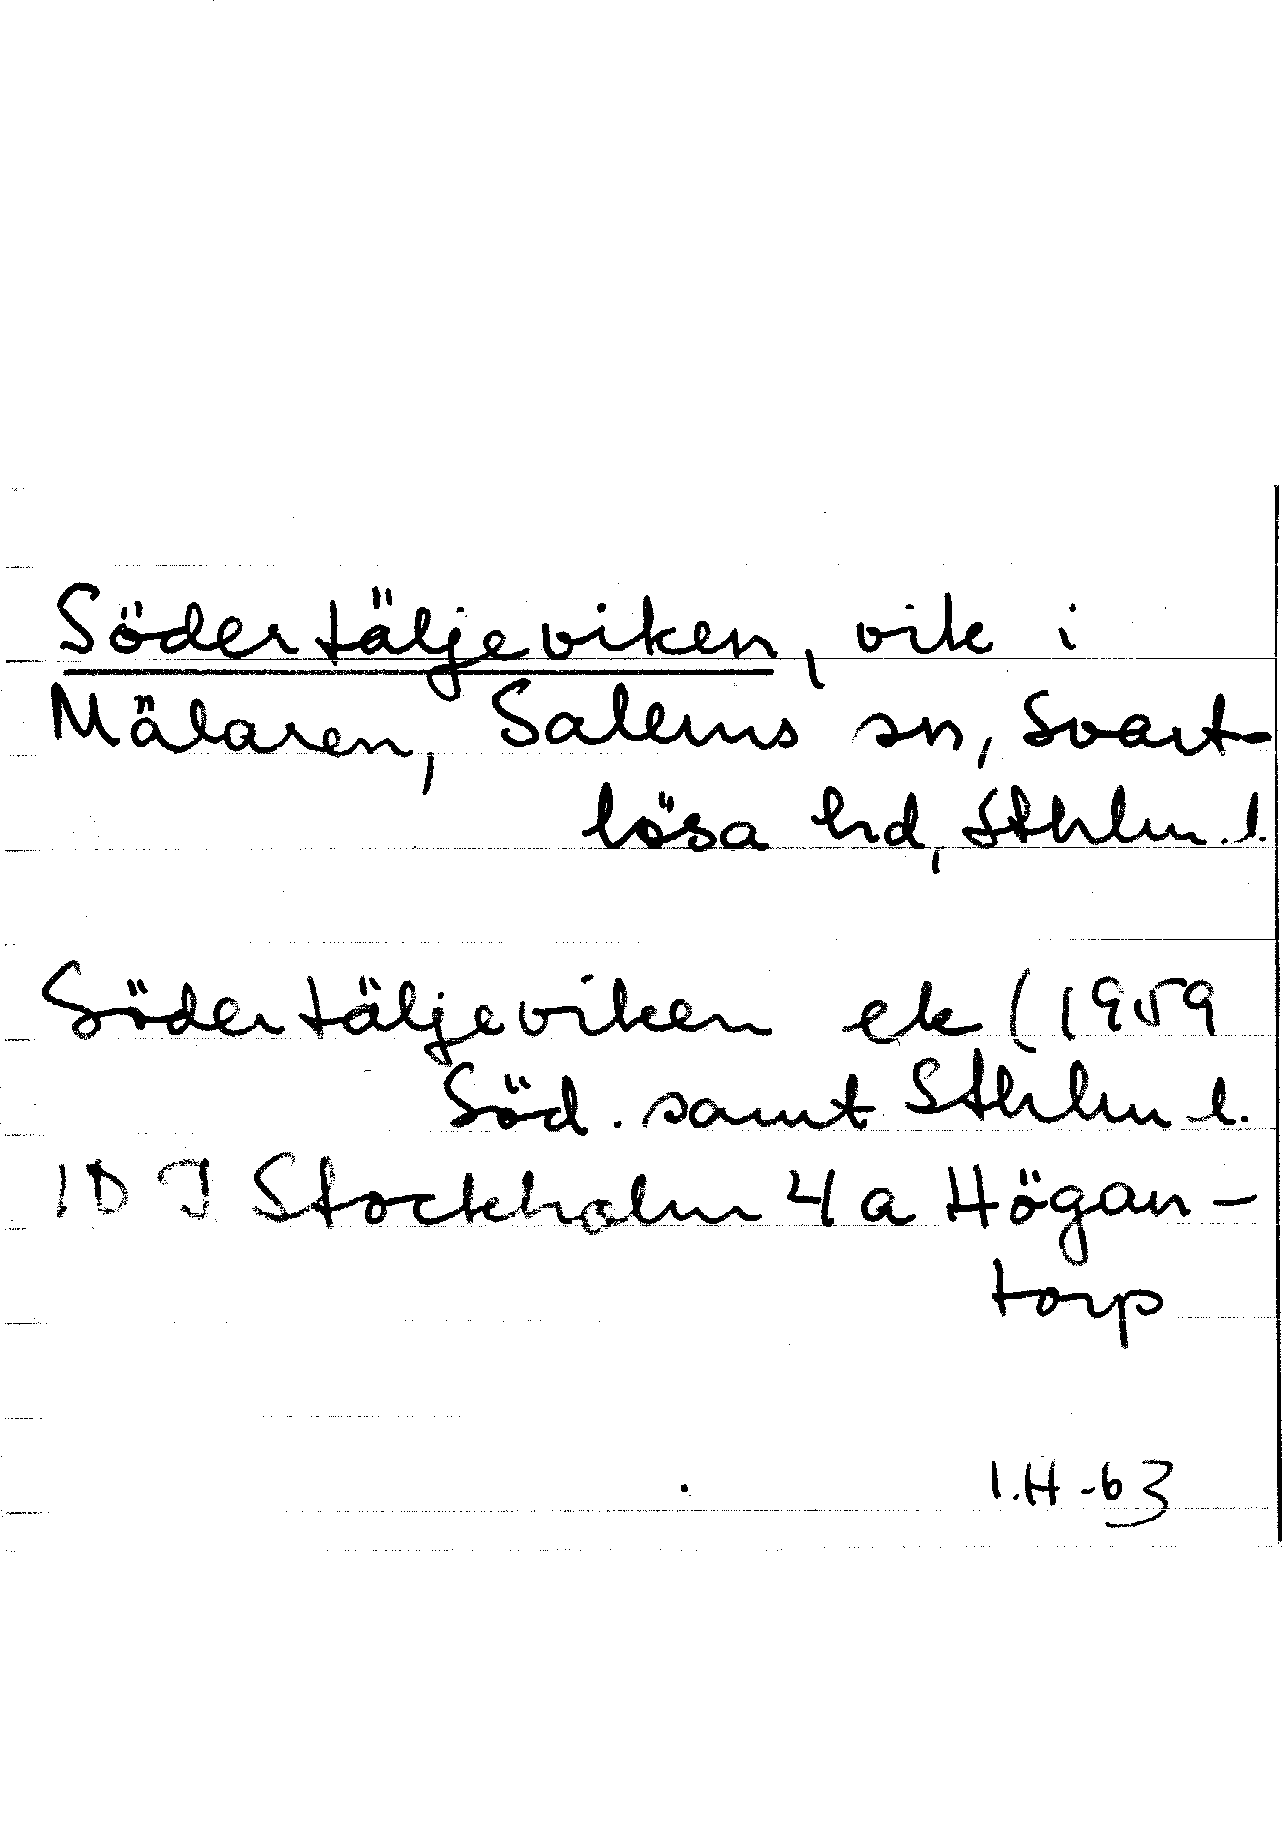 Södertäljeviken, vik i
Mälaren, Salems sn, Svart-
lösa hd, Sthlm.l.
Södertäljeviken ek (1959
Söd. samt Sthlm l.
10 I Stockholm 4a Högan-
torp
I.H -63